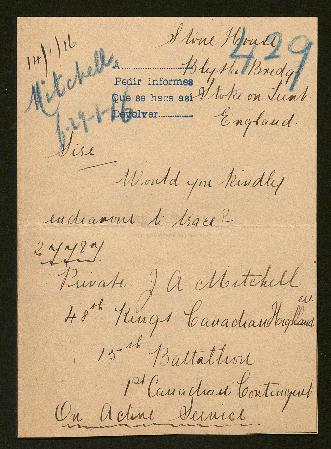 14/1/16
Stone House
429
Blythe Bridge
Stoke on Trent
England.
Mitchell
A
Pedir informes
Que se hara asi
Devolver
29-1-16
Sirs
Would you kindly
endeavour to trace?
27787
Private J A Mitchell
48th Kings Canadian Highland
15th Battathion
1st Canadian Contingent
On Active Service